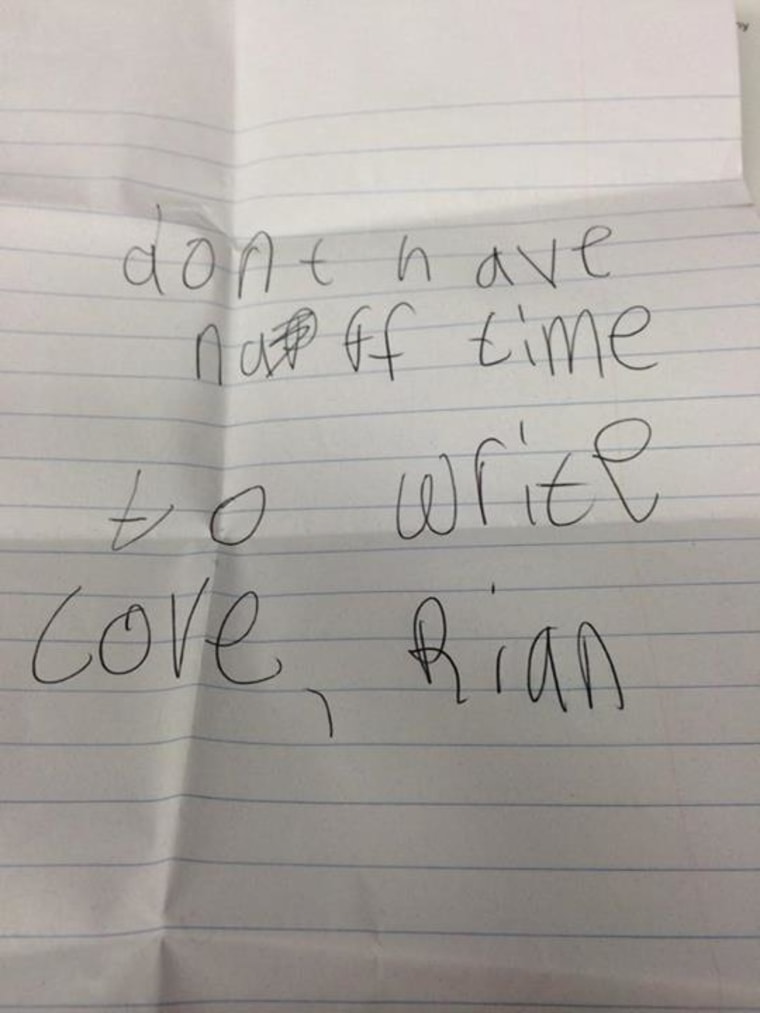 dont have
naff time
to write
Love, Rian